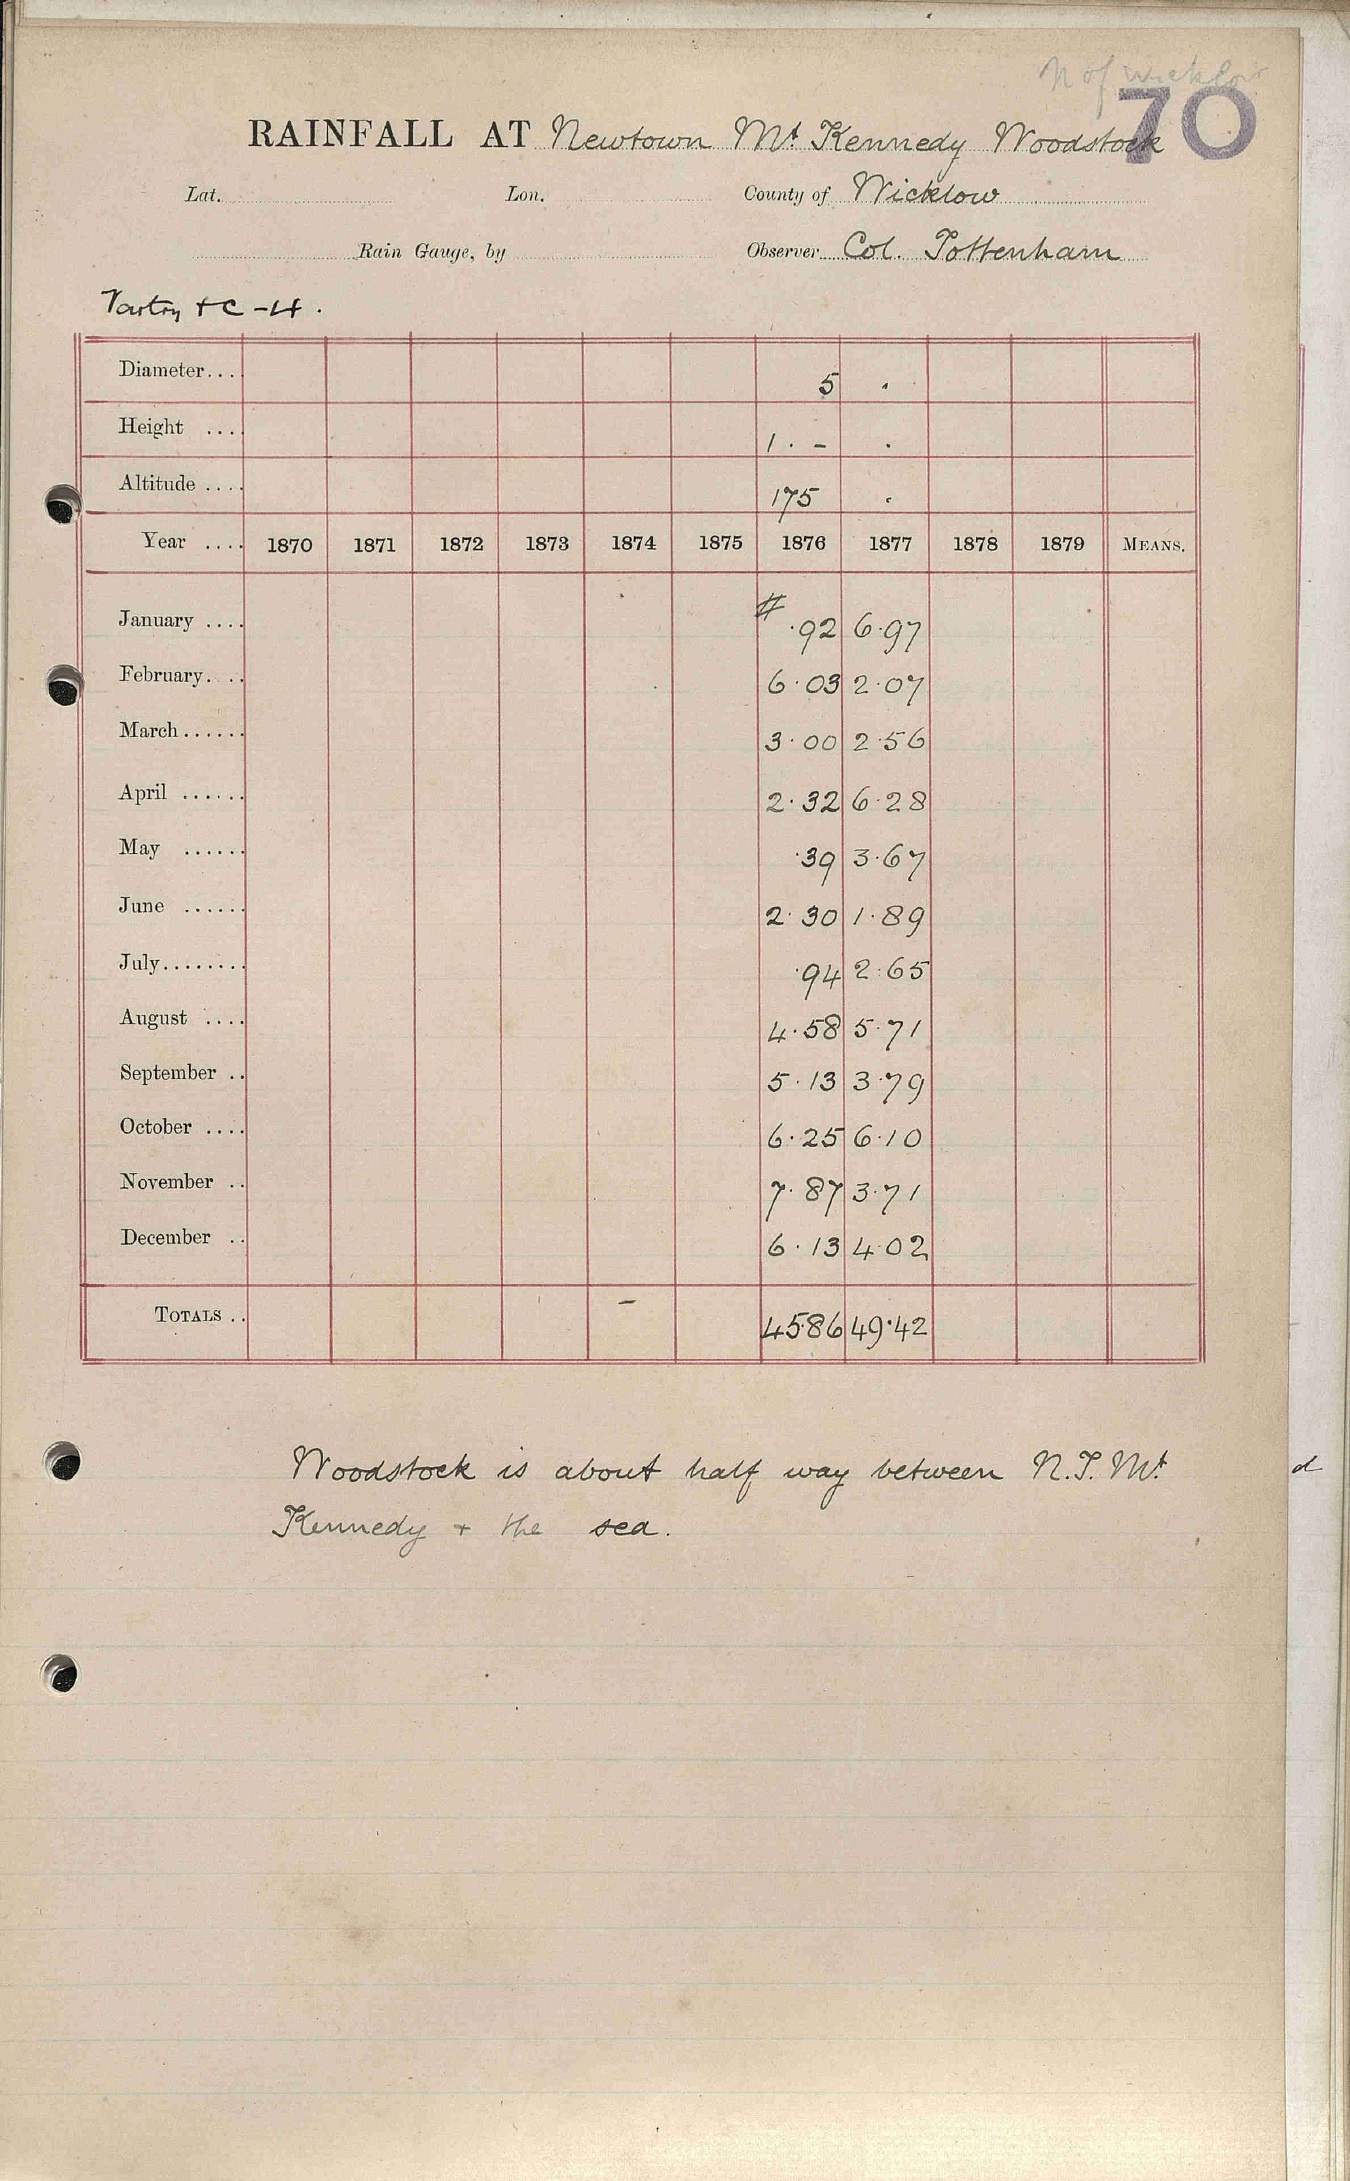 N of Wicklow
70
RAINFALL AT Newtown Mt Kennedy Woodstock
Lat. Lon. County of Wicklow
Rain Gauge, by Observer Col. Tottenham
Vartry + C - H.
Diameter... 5 .
Height ... 1 . - .
Altitude .... 175 .
Year .... 1870 1871 1872 1873 1874 1875 1876 1877 1878 1879 MEANS.
January .... # .92 6.97
February.... 6.03 2.07
March...... 3.00 2.56
April ...... 2.32 6.28
May ...... .39 3.67
June ...... 2.30 1.89
July........ .94 2.65
August .... 4.58 5.71
September .. 5.13 3.79
October .... 6.25 6.10
November .. 7.87 3.71
December .. 6.13 4.02
TOTALS .. - 45.86 49.42
Woodstock is about half way between N.T. Mt
Kennedy + the sea.
d